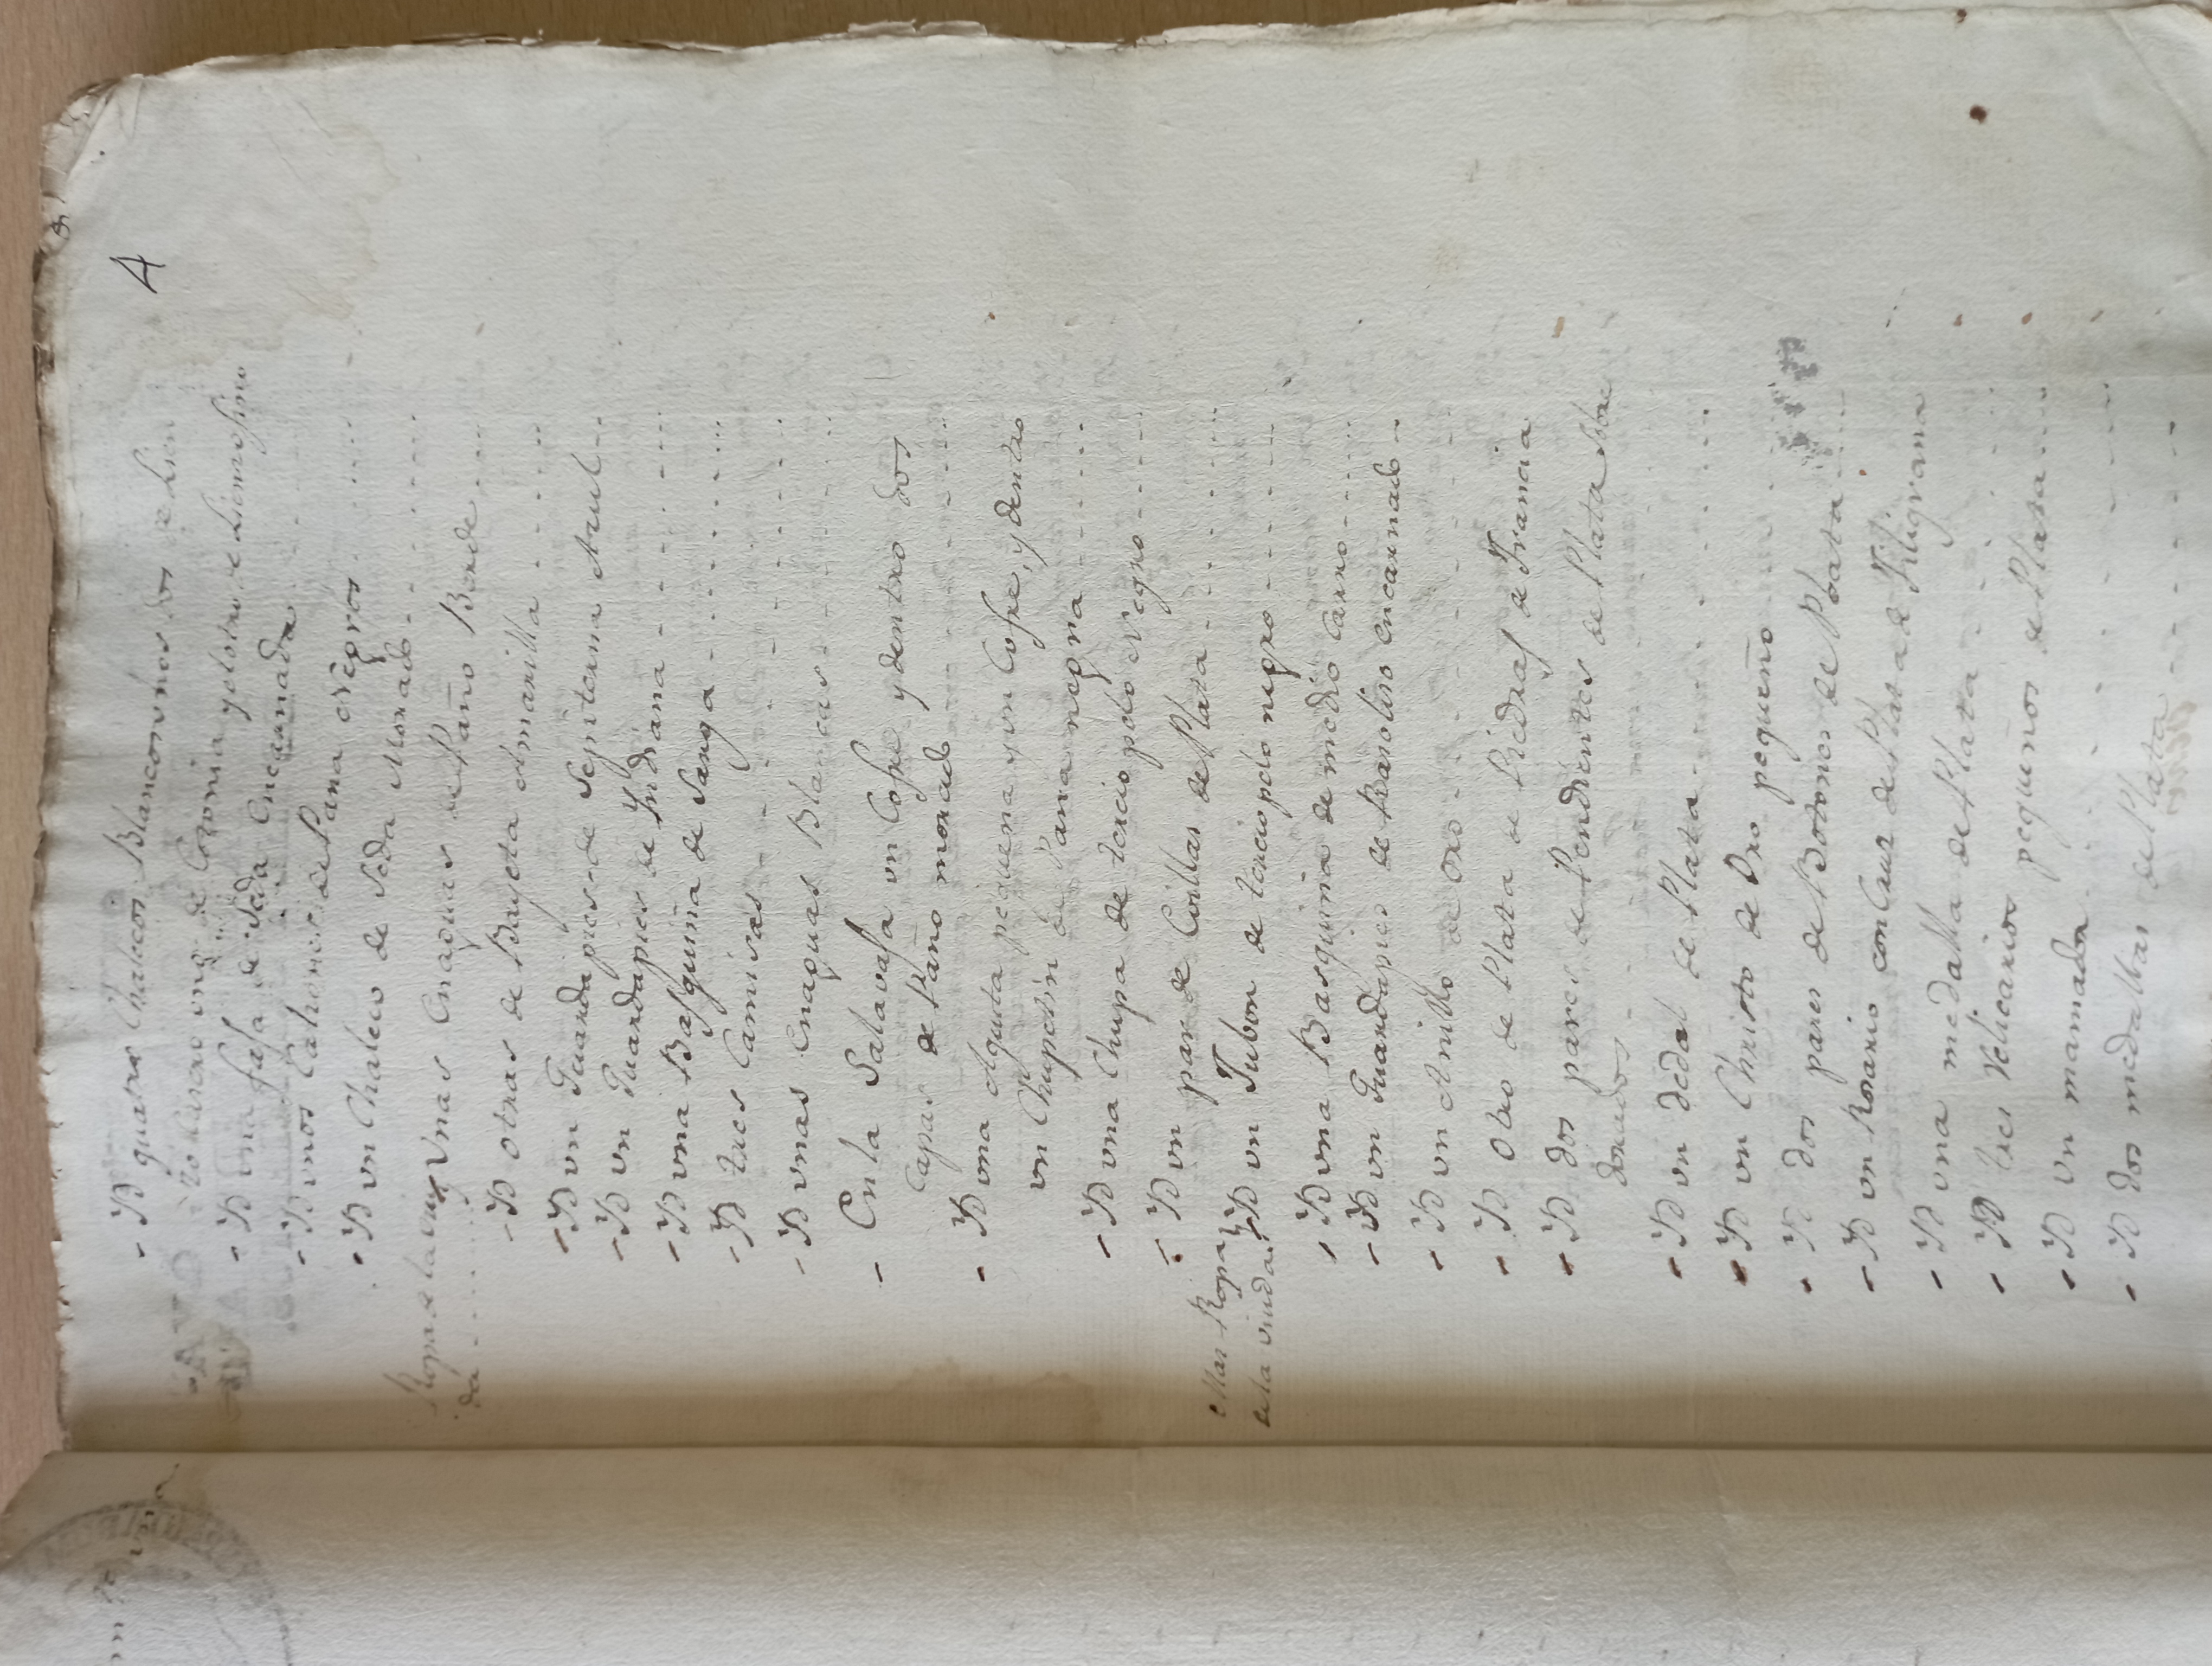 4
- Yd quatro Chalecos Blancos unos dos de Lien
zo Casero uno de Cotonia y el otro de Lienzo fino
- Yd una fafa de Seda Encarnada
- Yd unos Calzones de Pana Negros
- Yd un Chaleco de Seda Morado
Ropa de la viu
da
Unas Enaguas de Paño Berde
- Yd otras de Bayeta Amarilla
- Yd un Guardapies de Sepiterna Azul
- Yd un Guardapies de Yndiana
- Yd una Basquiña de Sarga
- Yd tres Camisas
- Yd unas Enaguas Blancas
- En la Salavasa un Cofre y dentro dos
Capas de Paño morado
- Yd una pequena y un Cofre, y dentro
un Chupetin de Pana negra
- Yd una Chupa de terciopelo Negro
- Yd un par de Evillas de Plata
Mas Ropa
de la viuda
Yd un Jubon de terciopelo negro
- Yd una Basquiña de medio Carro
- Yd un Guardapies de Rasoliso encarnado
- Yd un Anillo de oro
- Yd Otro de Plata de Piedras de Francia
- Yd dos pares de Pendientes de Plata Sobre
dorados
- Yd un dedal de Plata
- Yd un Christo de Oro pequeño
- Yd dos pares de Botones de Plata
- Yd un Rosario con Cruz de Plata de Filigrana
- Yd una medalla de Plata
- Yd tres Relicarios pequeños de Plata
- Yd un mamador
- Yd dos medallas de Plata